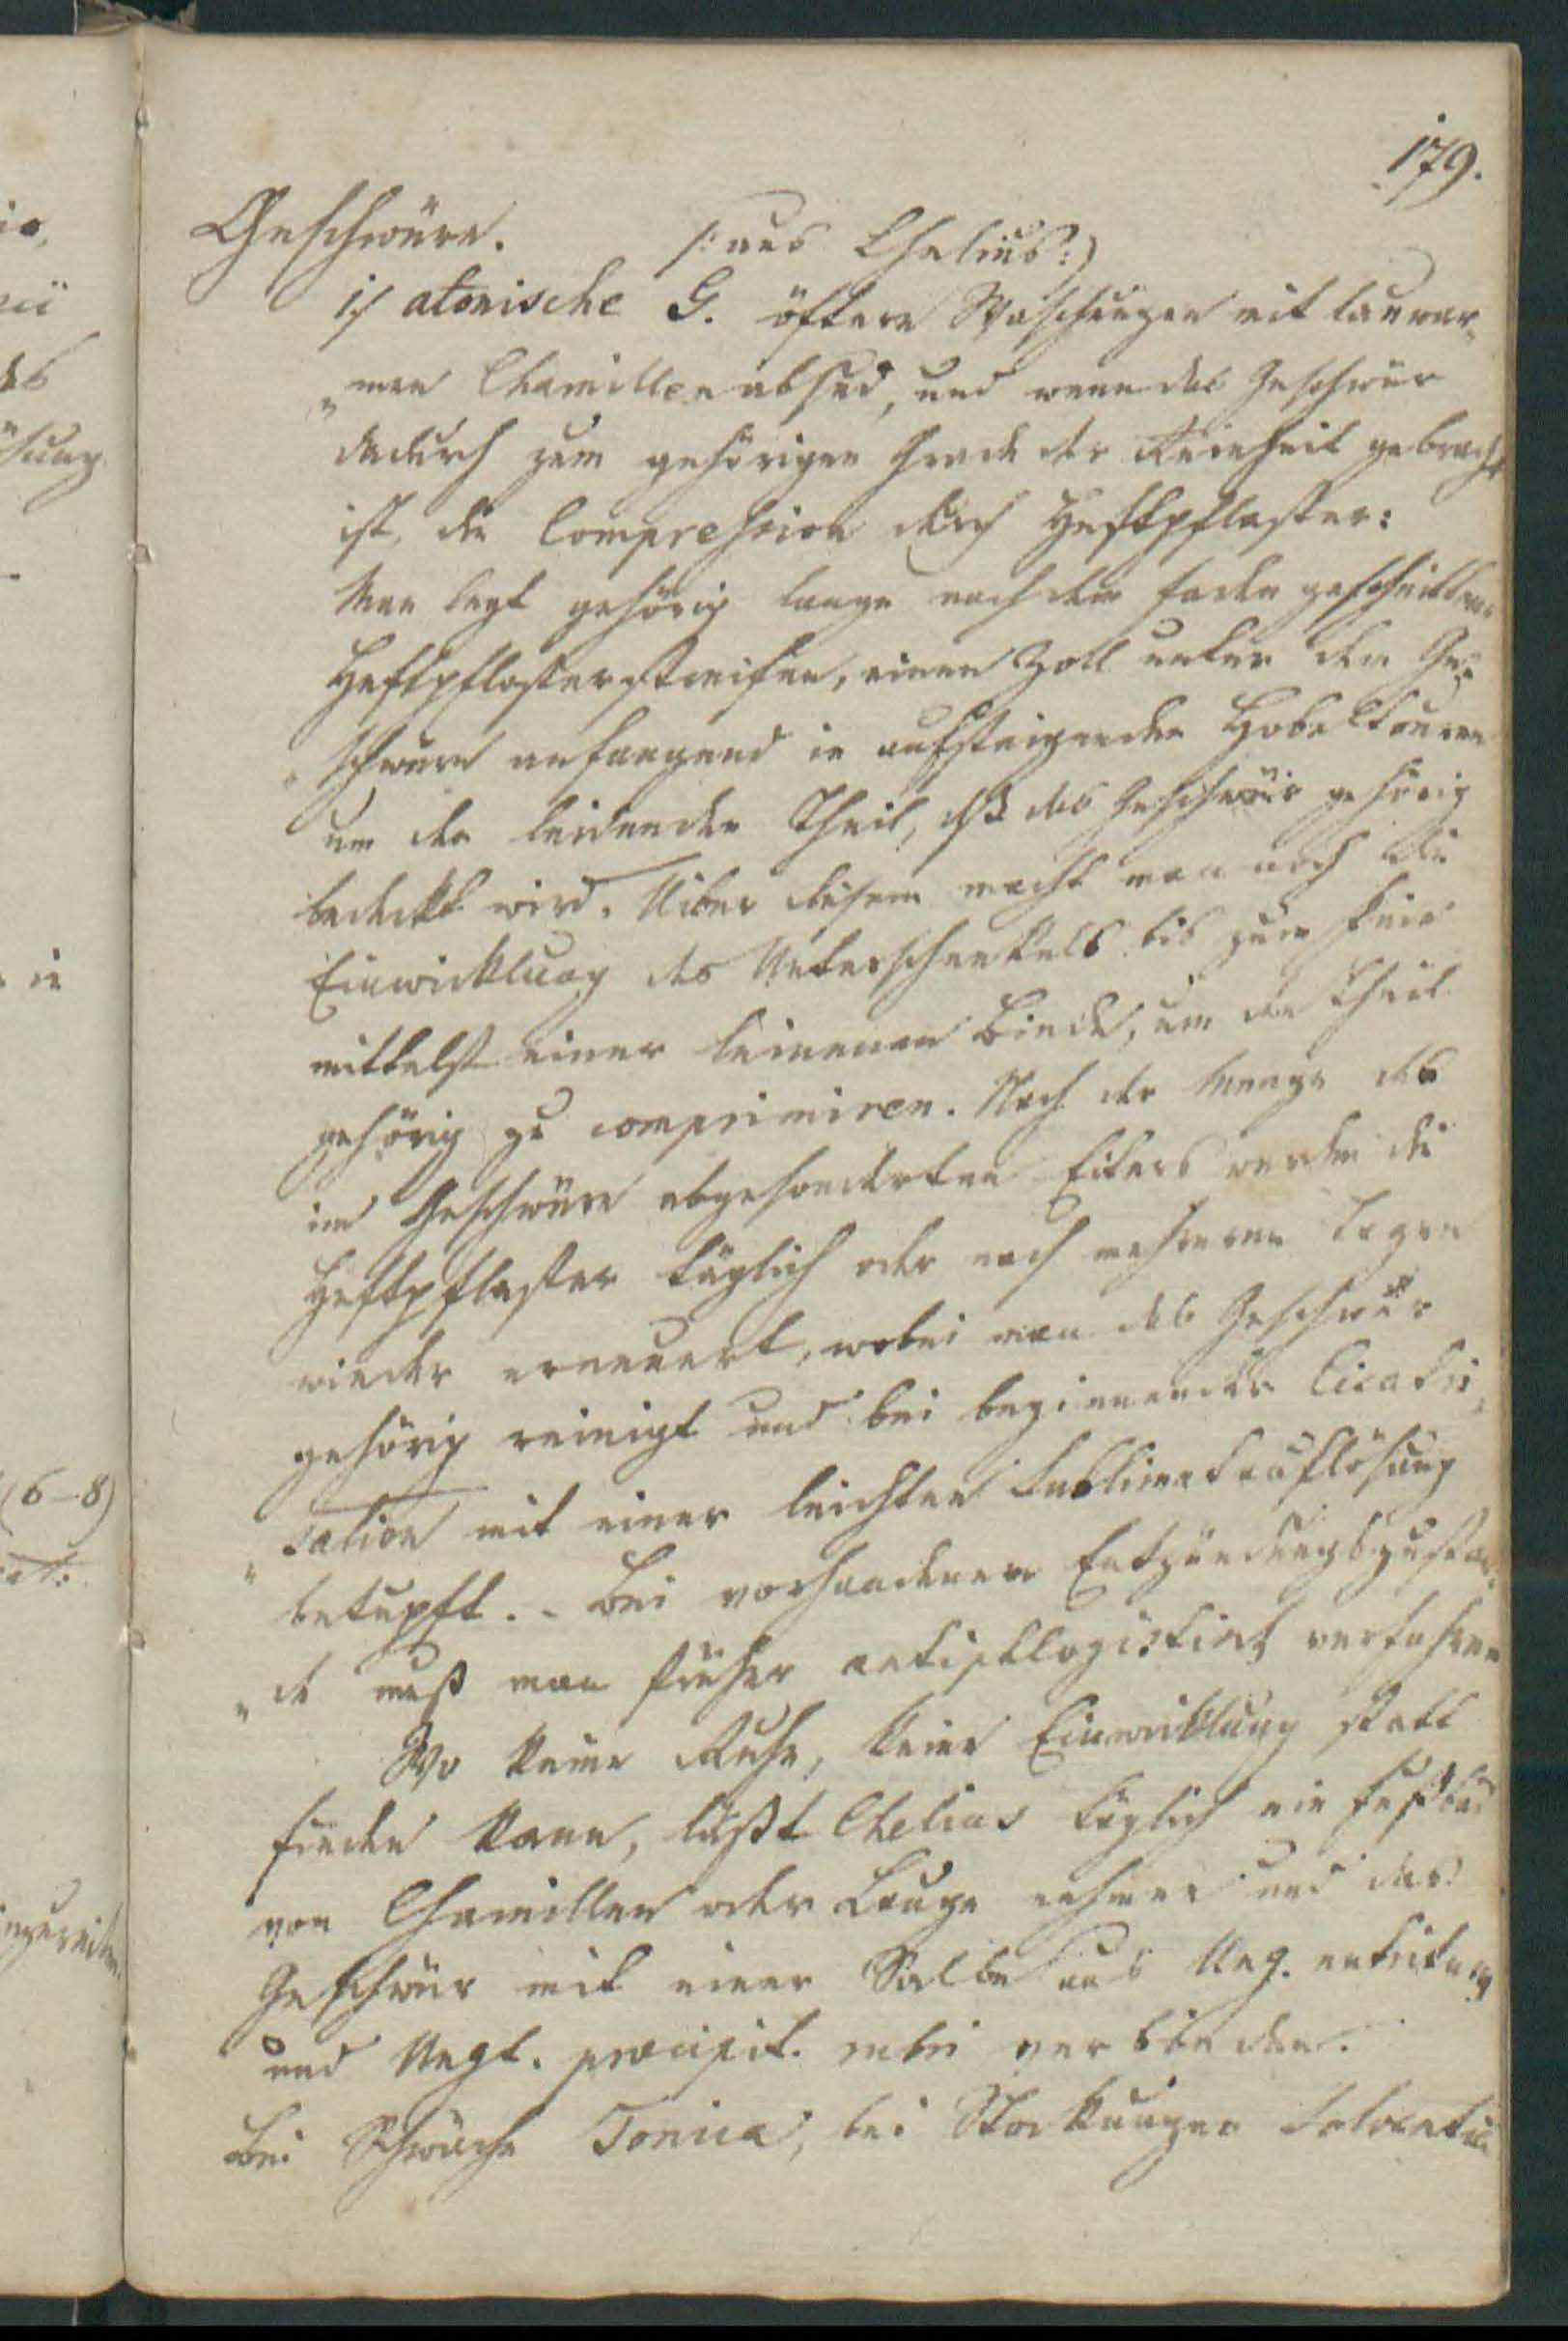 179.
Geschwüre. /: aus Chelius :)
1/ atonische G. öftere Waschungen mit lauwar„
„men Chamillenabsud, und wenn das Geschwür
dadurch zum gehörigen Grade der Reinheit gebracht
ist, die Compression durch Heftpflaster:
Man legt gehörig lange nach dem Faden geschnittene
Heftpflasterstreifen, einen Zoll unter dem Ge„
„schwüre anfangend in aufsteigenden Hobeltouren
um den leidenden Theil, dß das Geschwür gehörig
bedekt wird. Uiber diesem macht man noch die
Einwicklung des Unterschenkels bis zum Knie
mittelst einer leinenen Binde, um den Theil
gehörig zu comprimiren. Nach der Menge des
im Geschwüre abgesonderten Eiters werden die
Heftpflaster täglich oder nach mehreren Tagen
wieder erneuert, wobei man das Geschwür
gehörig reinigt und bei beginnender Cicatri„
„sation mit einer leichten Sublimatauflösung
betupft. - Bei vorhandenem Entzündungszustan„
„de muß man früher antiphlogistisch verfahren
Wo keine Ruhe, keine Einwicklung statt
finden kann, läßt Chelius täglich ein Fußbad
von Chamillen oder Lauge nehmen und das
Geschwür mit einer Salbe aus Ung.
und Ungt. præcipit. rubri verbinden.
Bei Schwäche Tonica, bei Stockungen Solventia
(6-8)
in